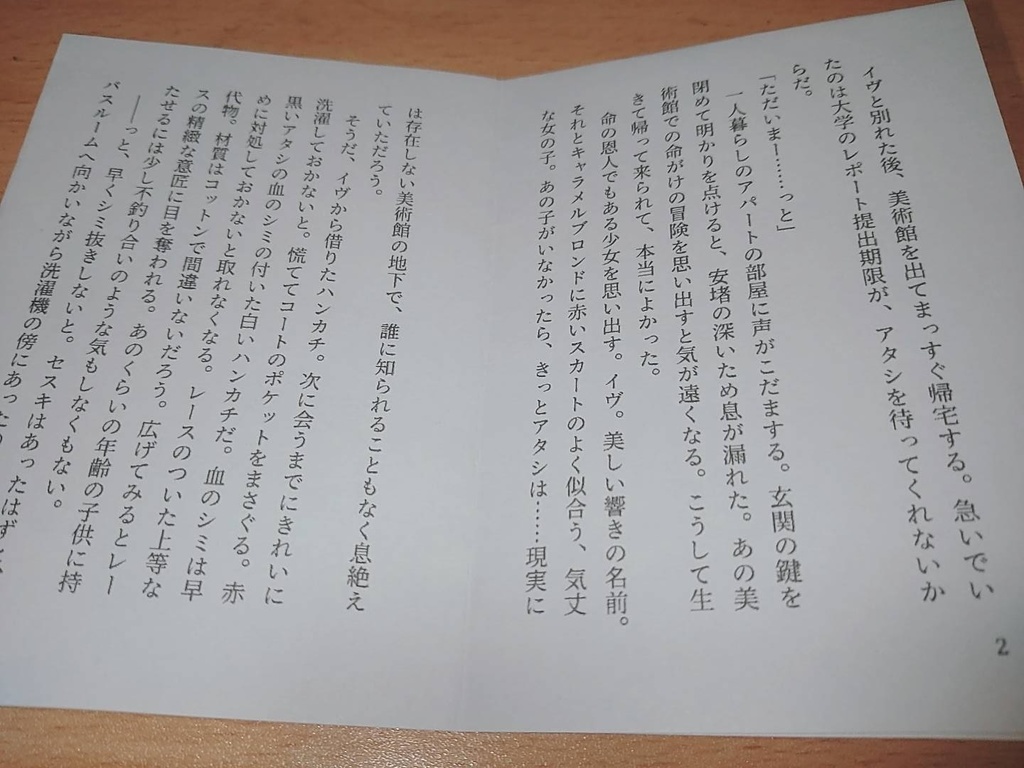 イヴと別れた後、美術館を出てまっすぐ帰宅する。急いでい
たのは大学のレポート提出期限が、アタシを待ってくれないか
らだ。
「ただいまー………っと」
一人暮らしのアパートの部屋に声がこだまする。玄関の鍵を
閉めて明かりを点けると、安堵の深いため息が漏れた。あの美
術館での命がけの冒険を思い出すと気が遠くなる。こうして生
きて帰って来られて、本当によかった。
命の恩人でもある少女を思い出す。イヴ。美しい響きの名前。
それとキャラメルブロンドに赤いスカートのよく似合う、気丈
な女の子。あの子がいなかったら、きっとアタシは……現実に
2
は存在しない美術館の地下で、誰に知られることもなく息絶え
ていただろう。
そうだ、イヴから借りたハンカチ。次に会うまでにきれいに
洗濯しておかないと。慌ててコートのポケットをまさぐる。赤
黒いアタシの血のシミの付いた白いハンカチだ。血のシミは早
めに対処しておかないと取れなくなる。レースのついた上等な
代物。材質はコットンで間違いないだろう。広げてみるとレー
スの精緻な意匠に目を奪われる。あのくらいの年齢の子供に持
たせるには少し不釣り合いのような気もしなくもない。
――っと、早くシミ抜きしないと。セスキはあったはずよ
バスルームへ向かいながら洗濯機の傍にあった